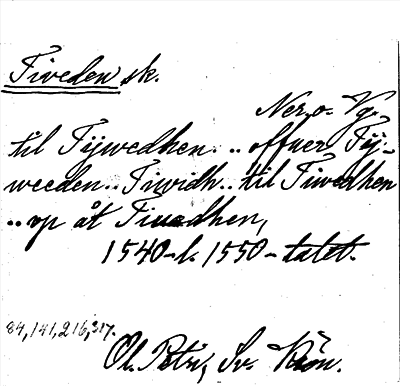 Tiveden sk.
Ner. o. Vg.
til Tijwedhen. .. offuer Tij-
weeden.. Tiwidh.. til Tiwedhen
.. op åt Tiuedhen,
1540-l. 1550-talet.
84, 141, 216, 317.
Ol. Petri, Sv. Krön.